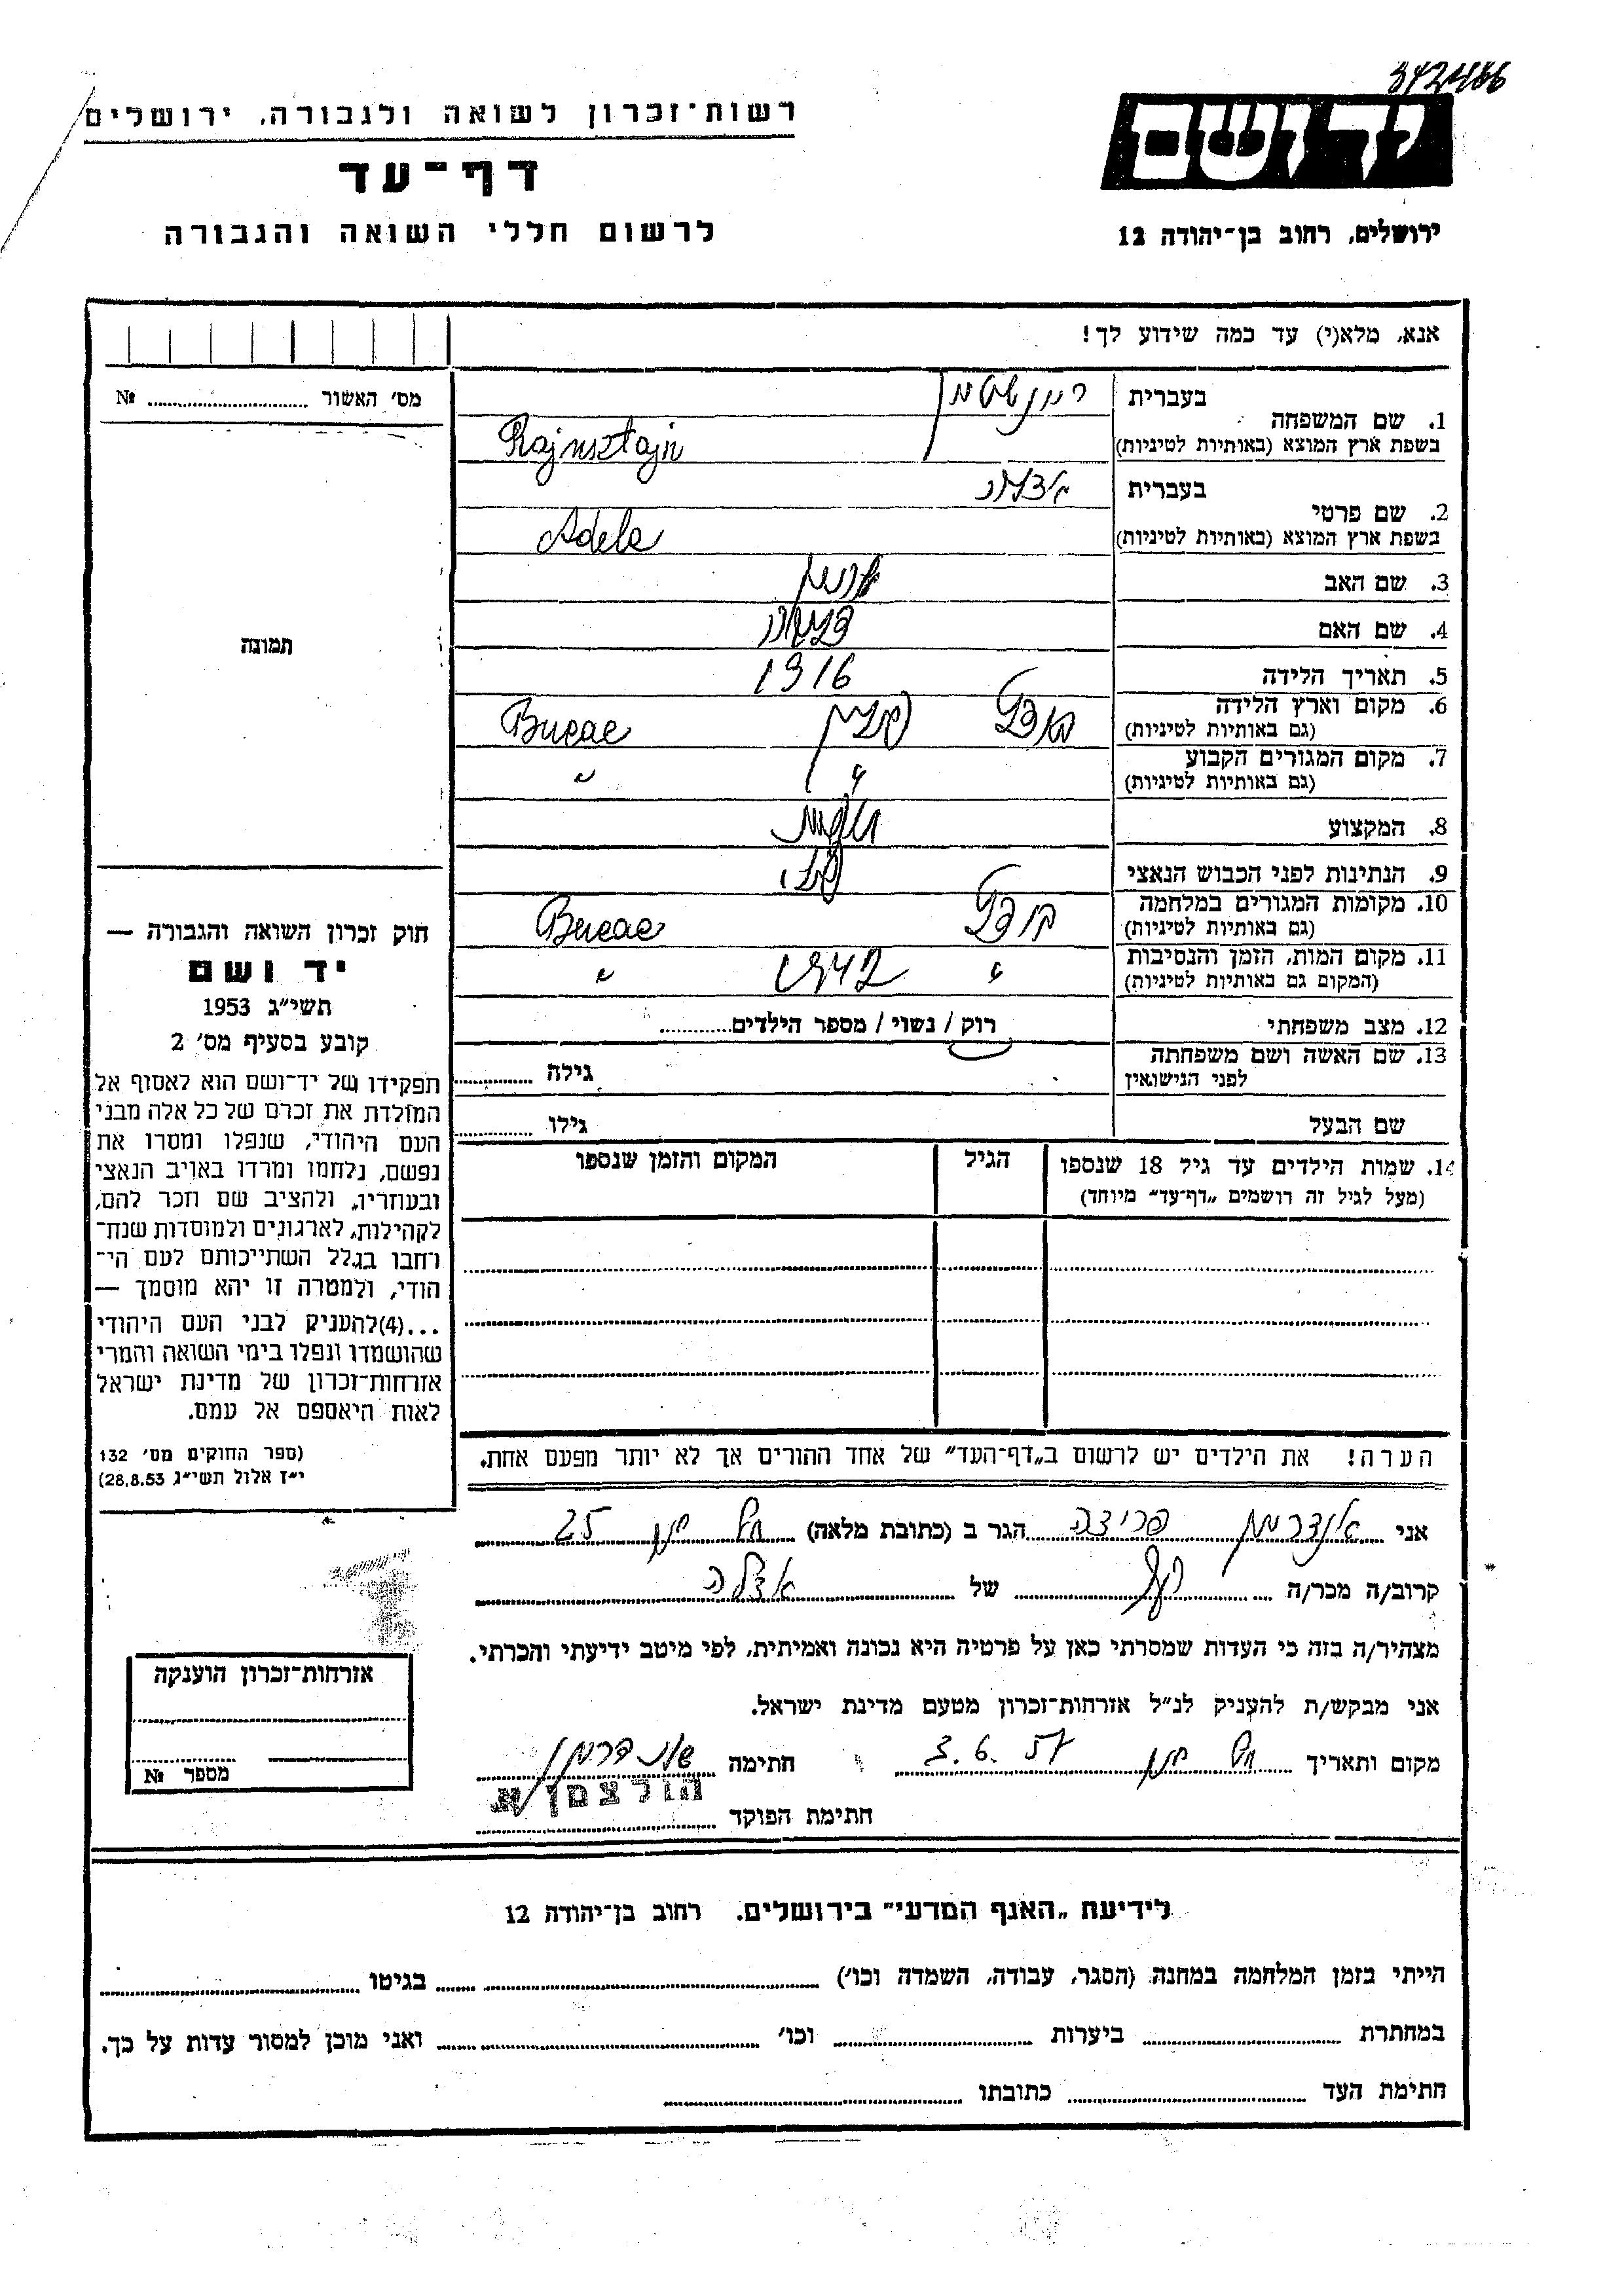 רשות־זכרון לשואה ולגבורה, ירושלים
דף־עד
לרשום חללי השואה והגבורה
יד ושם
ירושלים, רחוב בן־יהודה 12
אנא, מלא(י) עד כמה שידוע לך!
מס׳ האשור № 
תמונה
1. שם המשפחה
בעברית
בשפת ארץ המוצא (באותיות לטיניות) Rajnsztajn
2. שם פרטי
בעברית
בשפת ארץ המוצא (באותיות לטיניות) Adela
3. שם האב
4. שם האם
5. תאריך הלידה 1916
6. מקום וארץ הלידה Bucac
(גם באותיות לטיניות)
7. מקום המגורים הקבוע " "
(גם באותיות לטיניות)
8. המקצוע
9. הנתינות לפני הכבוש הנאצי
10. מקומות המגורים במלחמה Bucac
(גם באותיות לטיניות)
11. מקום המות, הזמן והנסיבות " 1942 "
(המקום גם באותיות לטיניות)
12. מצב משפחתי רוק / נשוי / מספר הילדים
13. שם האשה ושם משפחתה גילה
לפני הנישואין
שם הבעל גילו
14. שמות הילדים עד גיל 18 שנספו הגיל המקום והזמן שנספו
(מעל לגיל זה רושמים „דף־עד״ מיוחד)
הערה! את הילדים יש לרשום ב„דף־העד״ של אחד ההורים אך לא יותר מפעם אחת.
חוק זכרון השואה והגבורה —
יד ושם
תשי״ג 1953
קובע בסעיף מס׳ 2
תפקידו של יד־ושם הוא לאסוף אל
המולדת את זכרם של כל אלה מבני
העם היהודי, שנפלו ומסרו את
נפשם, נלחמו ומרדו באויב הנאצי
ובעוזריו, ולהציב שם וזכר להם,
לקהילות, לארגונים ולמוסדות שנח־
רחבו בגלל השתייכותם לעם הי־
הודי, ולמטרה זו יהא מוסמך —
...(4)להעניק לבני העם היהודי
שהושמדו ונפלו בימי השואה והמרי
אזרחות־זכרון של מדינת ישראל
לאות היאספם אל עמם.
(ספר החוקים מס׳ 132
י״ז אלול תשי״ג 28.8.53)
אני אנדרמן פרידה הגר ב (כתובת מלאה) 25
קרוב/ה מכר/ה של אדלה
מצהיר/ה בזה כי העדות שמסרתי כאן על פרטיה היא נכונה ואמיתית, לפי מיטב ידיעתי והכרתי.
אני מבקש/ת להעניק לנ״ל אזרחות־זכרון מטעם מדינת ישראל.
מקום ותאריך 3.6.57 חתימה
הולצמן א.
חתימת הפוקד
אזרחות־זכרון הוענקה
מספר №
לידיעת „האגף המדעי״ בירושלים, רחוב בן־יהודה 12
הייתי בזמן המלחמה במחנה (הסגר, עבודה, השמדה וכו׳) בגיטו
במחתרת ביערות וכו׳ ואני מוכן למסור עדות על כך.
חתימת העד כתובתו